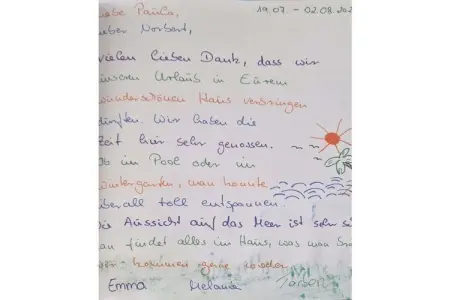 Liebe Paula, 19.07. - 02.08.202
lieber Norbert,
vielen lieben Dank, dass wir
unseren Urlaub in Eurem
wunderschönen Haus verbringen
durften. Wir haben die
Zeit hier sehr genossen.
Ob im Pool oder im
Wintergarten, man konnte
überall toll entspannen.
Die Aussicht auf das Meer ist sehr
man findet alles im Haus, was man
kommen gerne wieder
Emma Melanie Torben